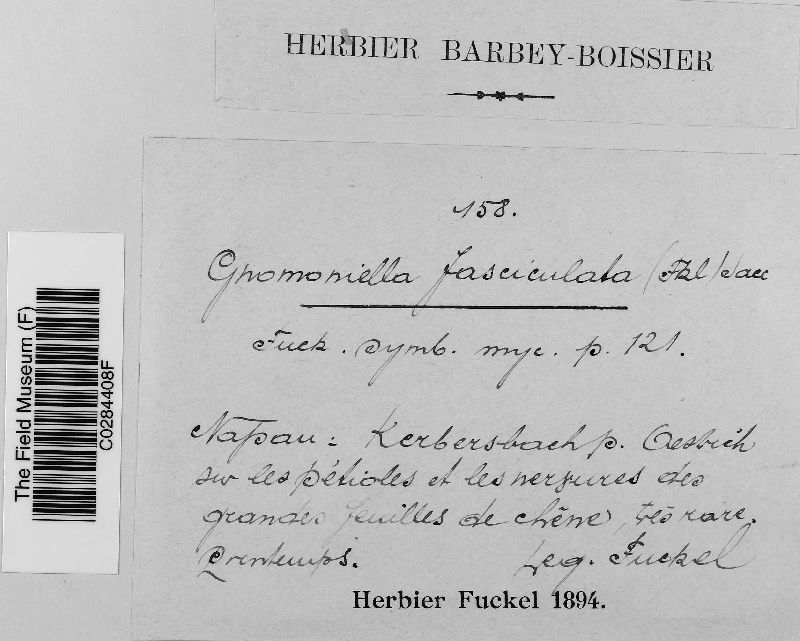 HERBIER BARBEY-BOISSIER
158.
Gnomoniella fasciculata (Fkl) Sacc
Fuck. Symb. myc. p. 121.
Naſsau: Kerbersbach p. Oestrich
sur les pétioles et les nervures des
grandes feuilles de chêne, très rare.
Printemps. Leg. Fuckel
Herbier Fuckel 1894.
The Field Museum (F)
C0284408F